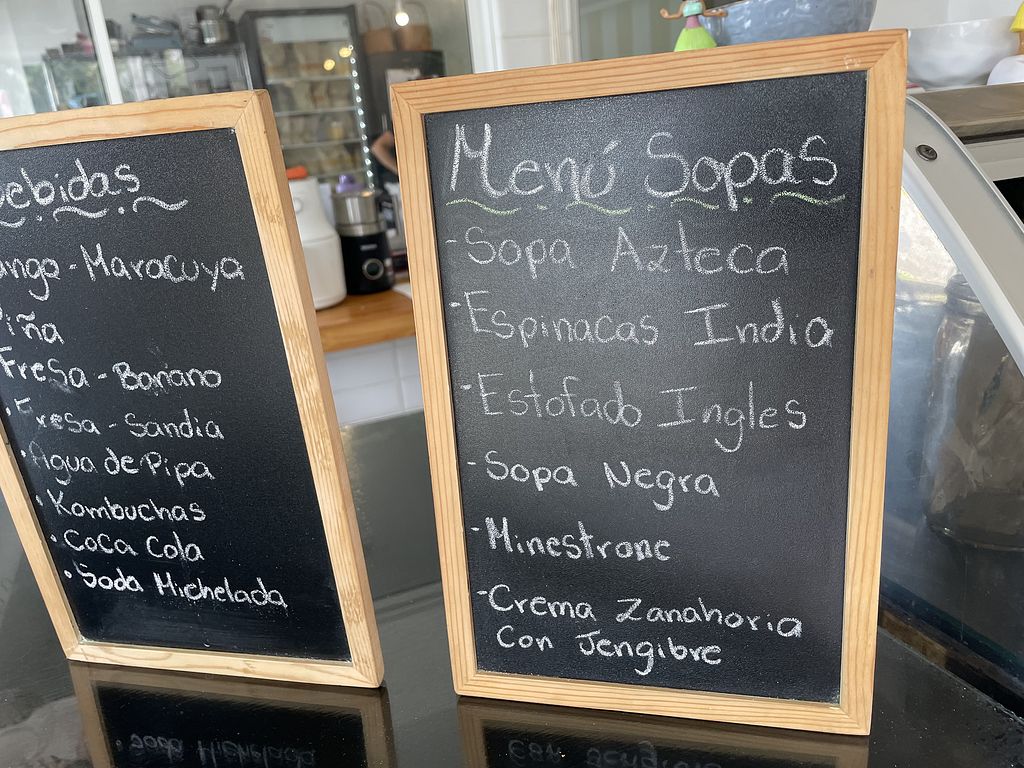 ebidas
ango - Maracuya
Piña
Fresa - Banano
• Fresa - Sandia
• Agua de Pipa
• Kombuchas
• Coca Cola
• Soda Michelada
Menú Sopas
- Sopa Azteca
- Espinacas India
- Estofado Ingles
- Sopa Negra
- Minestrone
- Crema Zanahoria
Con Jengibre